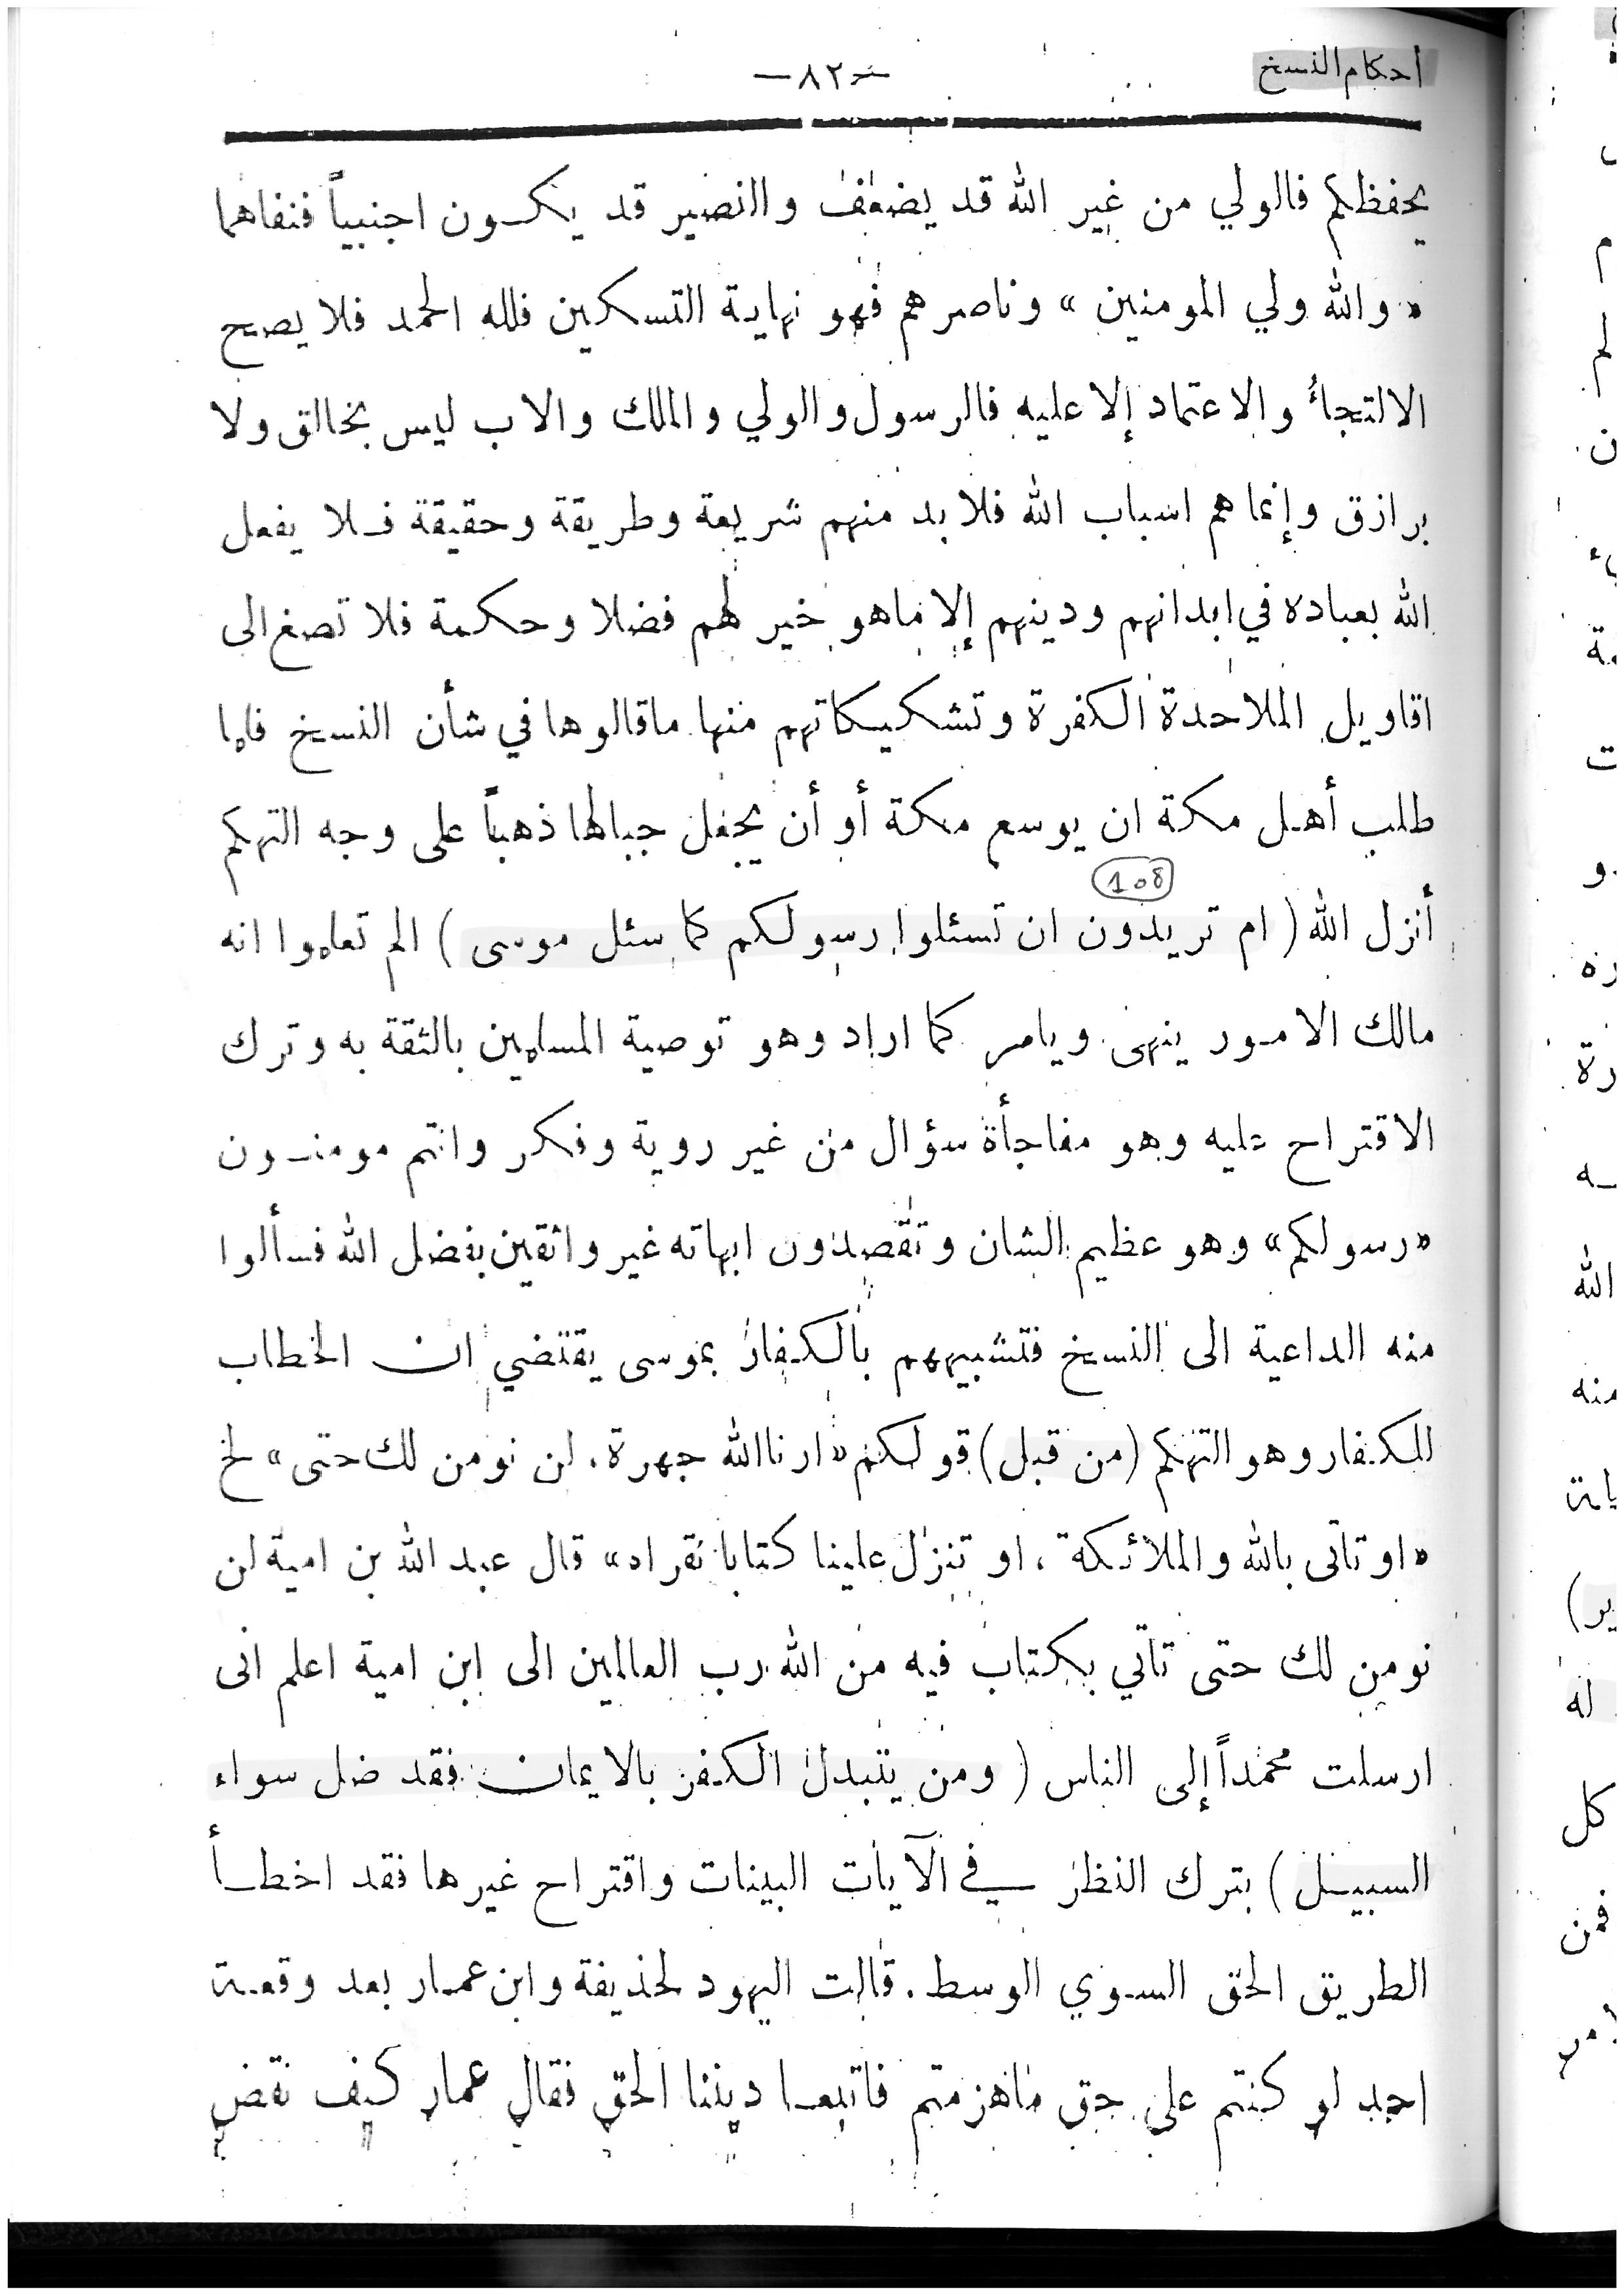 أحكام النسخ
—٨٢—
يحفظكم فالولي من غير الله قد يضعف والنصير قد يكون اجنبياً فنفاهما
« والله ولي المومنين » وناصرهم فهو نهاية التسكين فلله الحمد فلا يصح
الالتجأ والاعتماد إلا عليه فالرسول والولي والملك والاب ليس بخالق ولا
برازق وإنما هم اسباب الله فلا بد منهم شريعة وطريقة وحقيقة فلا يفعل
الله بعباده في ابدانهم ودينهم إلا ماهو خير لهم فضلا وحكمة فلا تصغ الى
اقاويل الملاحدة الكفرة وتشكيكاتهم منها ماقالوها في شأن النسخ فلما
طلب أهل مكة ان يوسع مكة أو أن يجعل جبالها ذهباً على وجه التهكم
108
أنزل الله ( ام تريدون ان تسئلوا رسولكم كما سئل موسى ) الم تعلموا انه
مالك الامور ينهى ويامر كما اراد وهو توصية المسلمين بالثقة به وترك
الاقتراح عليه وهو مفاجأة سؤال من غير روية وفكر وانتم مومنون
« رسولكم » وهو عظيم الشان وتقصدون ابهاته غير واثقين بفضل الله فسألوا
منه الداعية الى النسخ فتشبيههم بالكفار بموسى يقتضي ان الخطاب
للكفار وهو التهكم (من قبل) قولكم « ارنا الله جهرة، لن نومن لك حتى » لخ
« او تاتى بالله والملائكة ، او تنزل علينا كتابا نقراه » قال عبد الله بن امية لن
نومن لك حتى تاتي بكتاب فيه من الله رب العالمين الى ابن امية اعلم انى
ارسلت محمداً إلى الناس ( ومن يتبدل الكفر بالايمان فقد ضل سواء
السبيل ) بترك النظر في الآيات البينات واقتراح غيرها فقد اخطأ
الطريق الحق السوي الوسط. قالت اليهود لحذيفة وابن عمار بعد وقعة
احد لو كنتم على حق ماهزمتم فاتبعا ديننا الحق فقال عمار كيف نقض